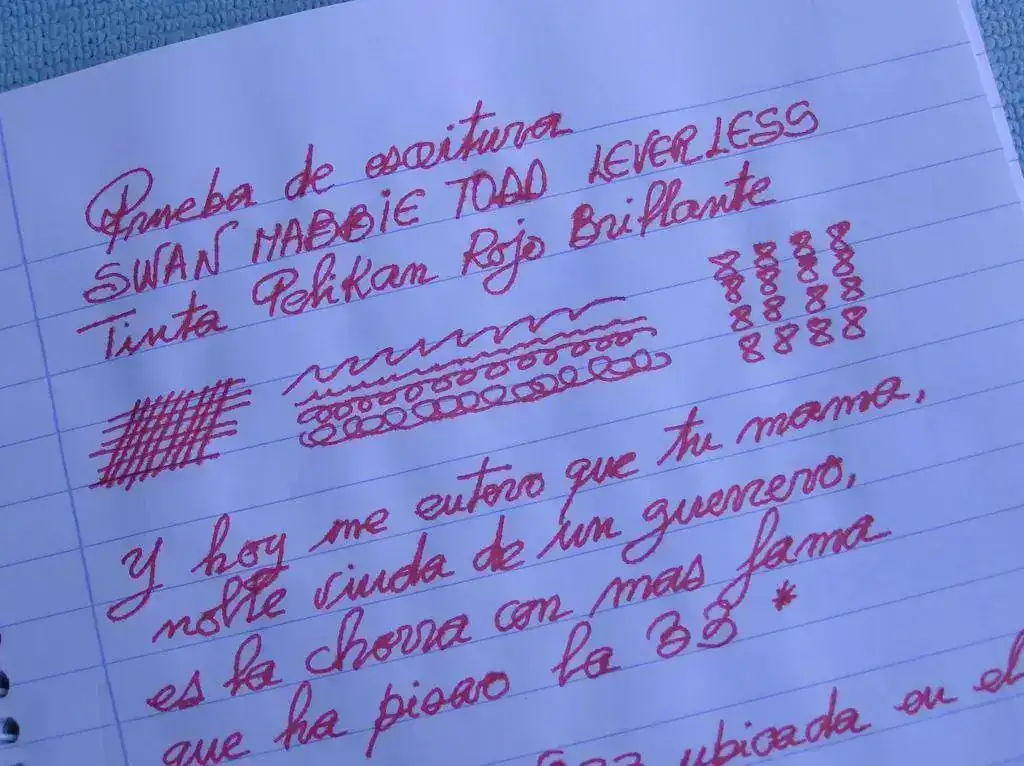 Prueba de escritura
SWAN MABBIE TODD LEVERLESS
Tinta Pelikan Rojo Brillante
8 8 8 8
8 8 8 8
8 8 8 8
8 8 8 8
Y hoy me entero que tu mama,
noble viuda de un guerrero,
es la chorra con mas fama
que ha pisao la 33 *
ubicada en el